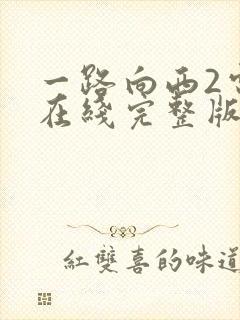 一路向西2
在綫完整版
紅雙喜的味道